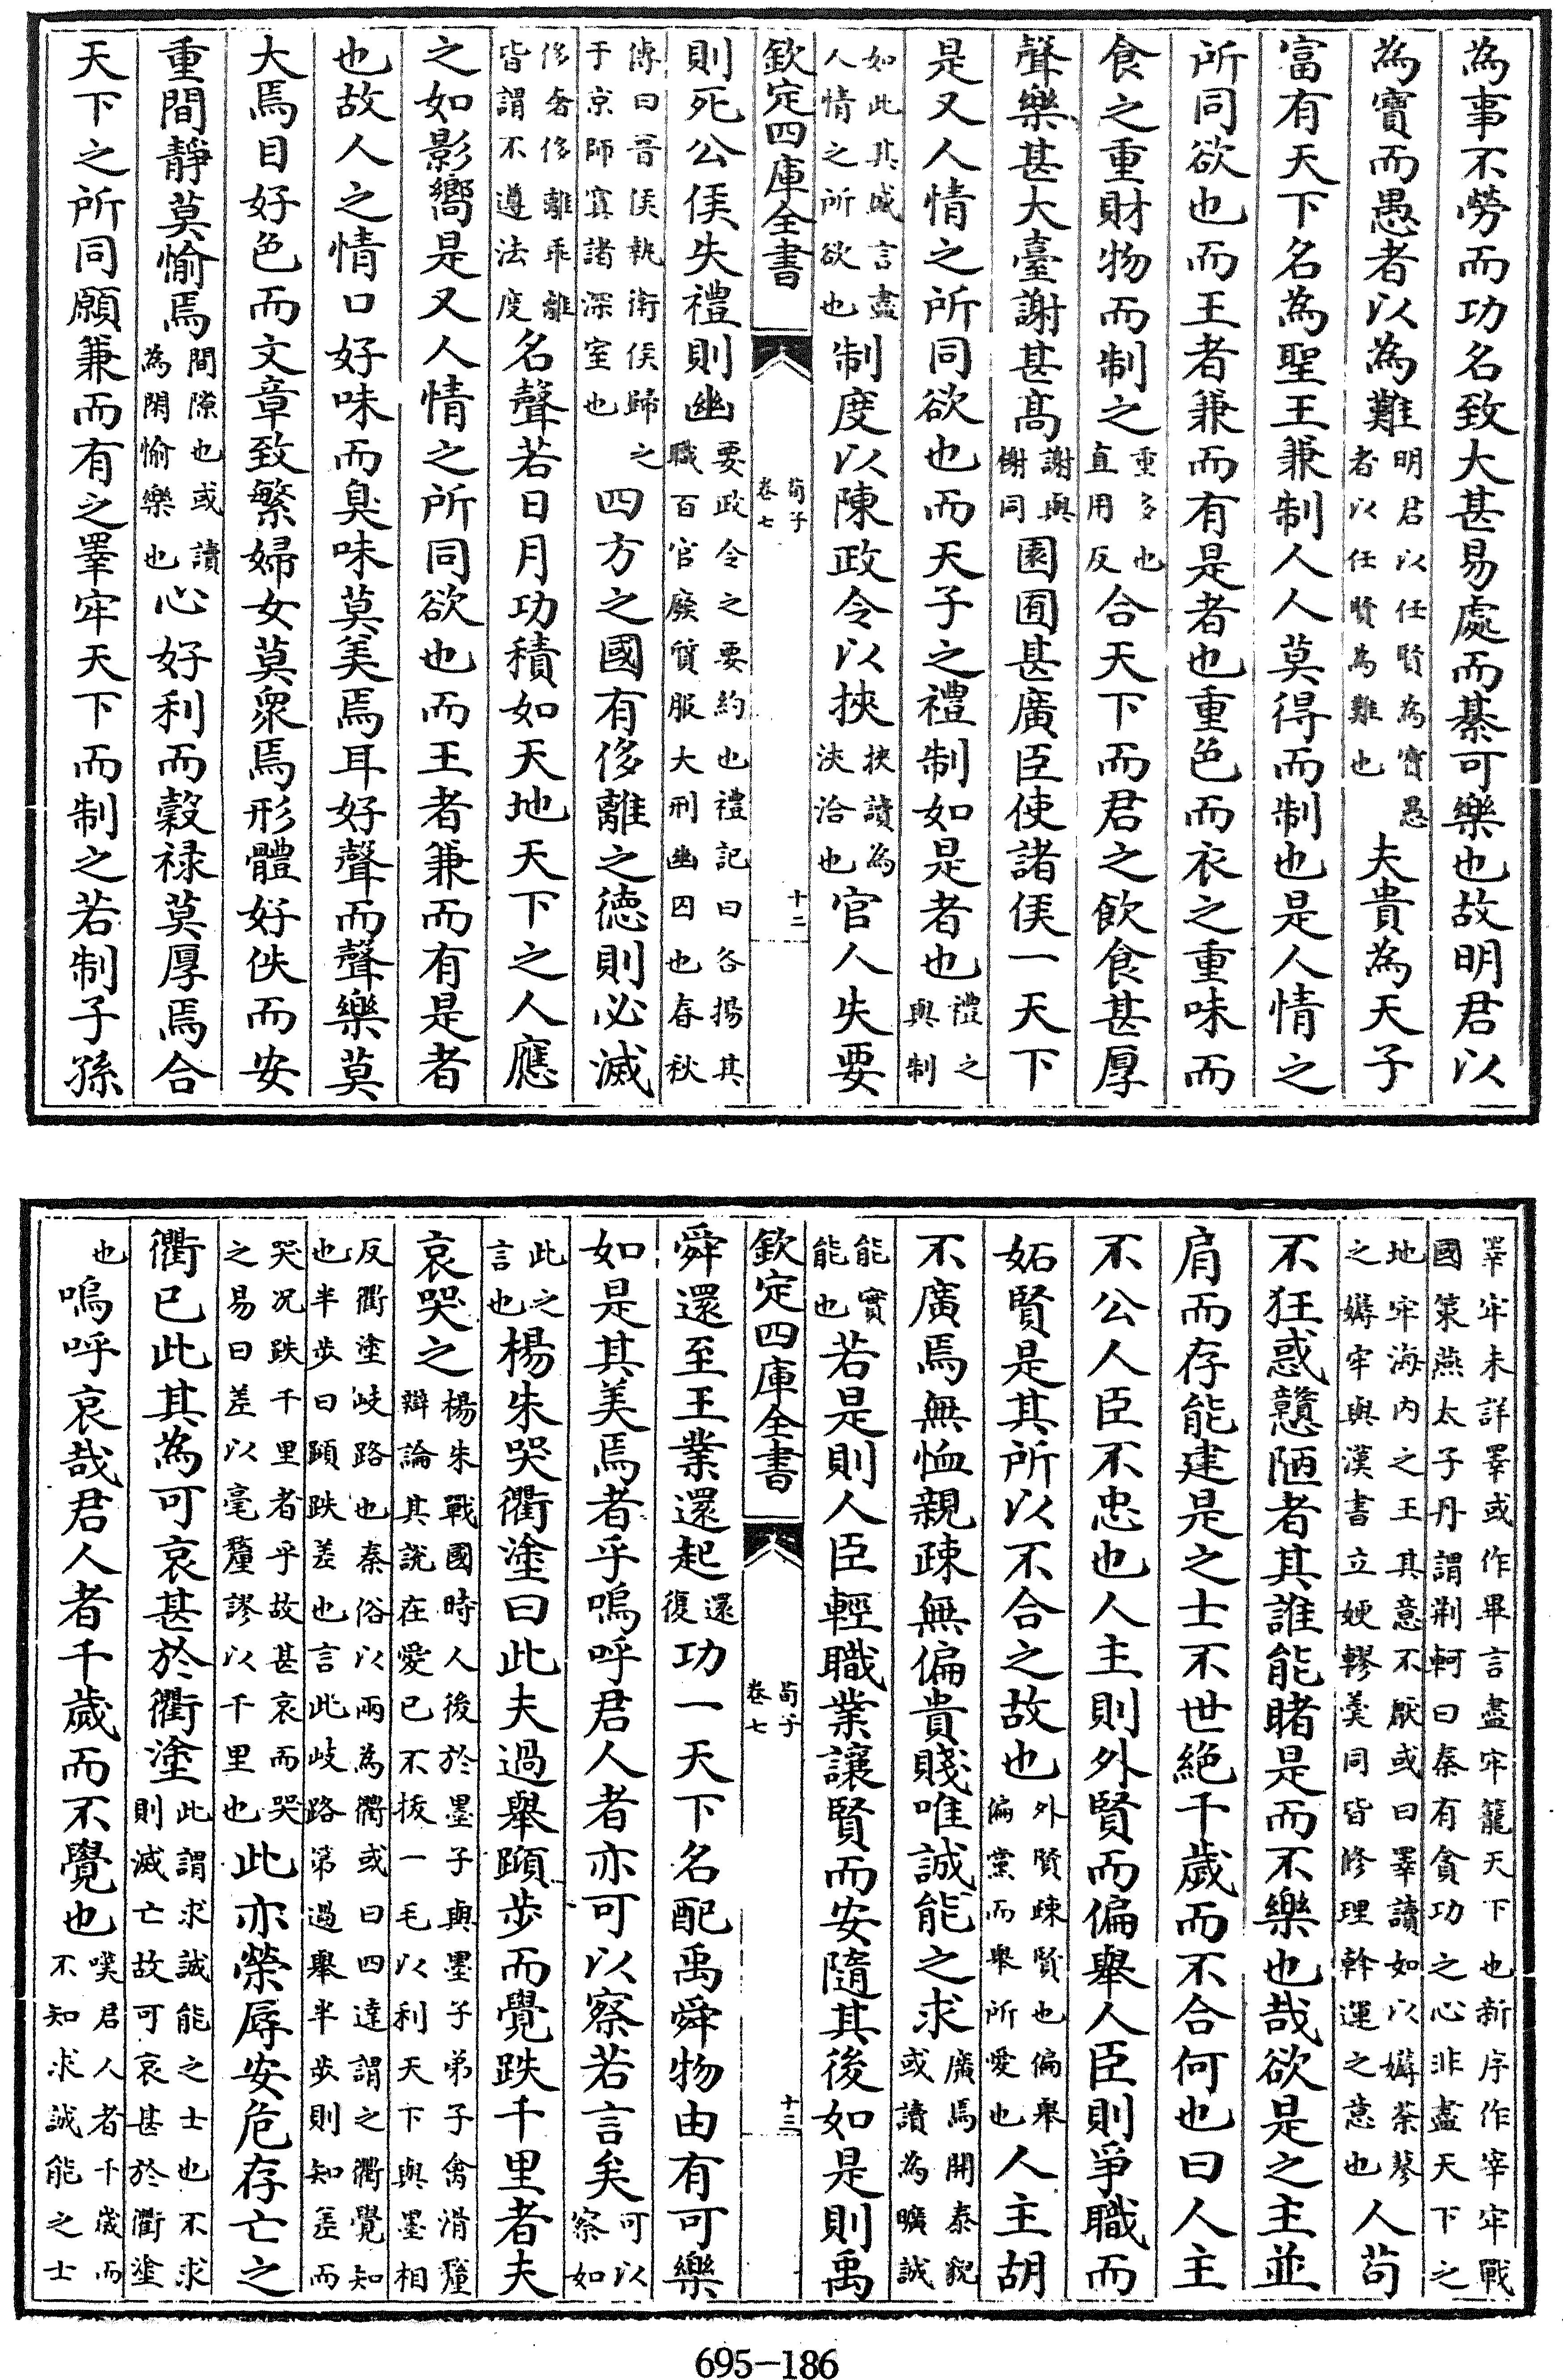 為事不勞而功名致大甚易處而綦可樂也故明君以
為寶而愚者以為難明君以任賢為寶愚者以任賢為難也夫貴為天子
富有天下名為聖王兼制人人莫得而制也是人情之
所同欲也而王者兼而有是者也重色而衣之重味而
食之重財物而制之重多也直用反合天下而君之飲食甚厚
聲樂甚大臺謝甚高謝與榭同園囿甚廣臣使諸侯一天下
是又人情之所同欲也而天子之禮制如是者也禮之與制
如此其盛言盡人情之所欲也制度以陳政令以挾挾讀為浹洽也官人失要
欽定四庫全書 荀子卷七 十二
則死公侯失禮則幽要政令之要約也禮記曰各揚其職百官廢質服大刑幽囚也春秋
傳曰晉侯執衛侯歸之于京師寘諸深室也四方之國有侈離之德則必滅
侈奢侈離乖離皆謂不遵法度名聲若日月功積如天地天下之人應
之如影嚮是又人情之所同欲也而王者兼而有是者
也故人之情口好味而臭味莫美焉耳好聲而聲樂莫
大焉目好色而文章致繁婦女莫衆焉形體好佚而安
重間靜莫愉焉間隙也或讀為閑愉樂也心好利而穀祿莫厚焉合
天下之所同願兼而有之睪牢天下而制之若制子孫
睪牢未詳睪或作畢言盡牢籠天下也新序作宰牢戰國策燕太子丹謂荆軻曰秦有貪功之心非盡天下之
地牢海内之王其意不厭或曰睪讀如以薅荼蓼之薅牢與漢書立㛐轑羹同皆修理幹運之意也人苟
不狂惑戇陋者其誰能睹是而不樂也哉欲是之主並
肩而存能建是之士不世絶千歲而不合何也曰人主
不公人臣不忠也人主則外賢而偏舉人臣則爭職而
妬賢是其所以不合之故也外賢疎賢也偏舉偏黨而舉所愛也人主胡
不廣焉無恤親疎無偏貴賤唯誠能之求廣焉開泰貌或讀為曠誠
能實能也若是則人臣輕職業讓賢而安隨其後如是則禹
欽定四庫全書 荀子卷七 十三
舜還至王業還起還復功一天下名配禹舜物由有可樂
如是其美焉者乎嗚呼君人者亦可以察若言矣可以察如
此之言也楊朱哭衢塗曰此夫過舉蹞步而覺跌千里者夫
哀哭之楊朱戰國時人後於墨子與墨子弟子禽滑釐辯論其說在愛已不拔一毛以利天下與墨相
反衢塗岐路也秦俗以兩為衢或曰四達謂之衢覺知也半步曰蹞跌差也言此岐路第過舉半步則知差而
哭况跌千里者乎故甚哀而哭之易曰差以毫釐謬以千里也此亦榮辱安危存亡之
衢已此其為可哀甚於衢塗此謂求誠能之士也不求則滅亡故可哀甚於衢塗
也嗚呼哀哉君人者千歲而不覺也嘆君人者千歲而不知求誠能之士
695-186